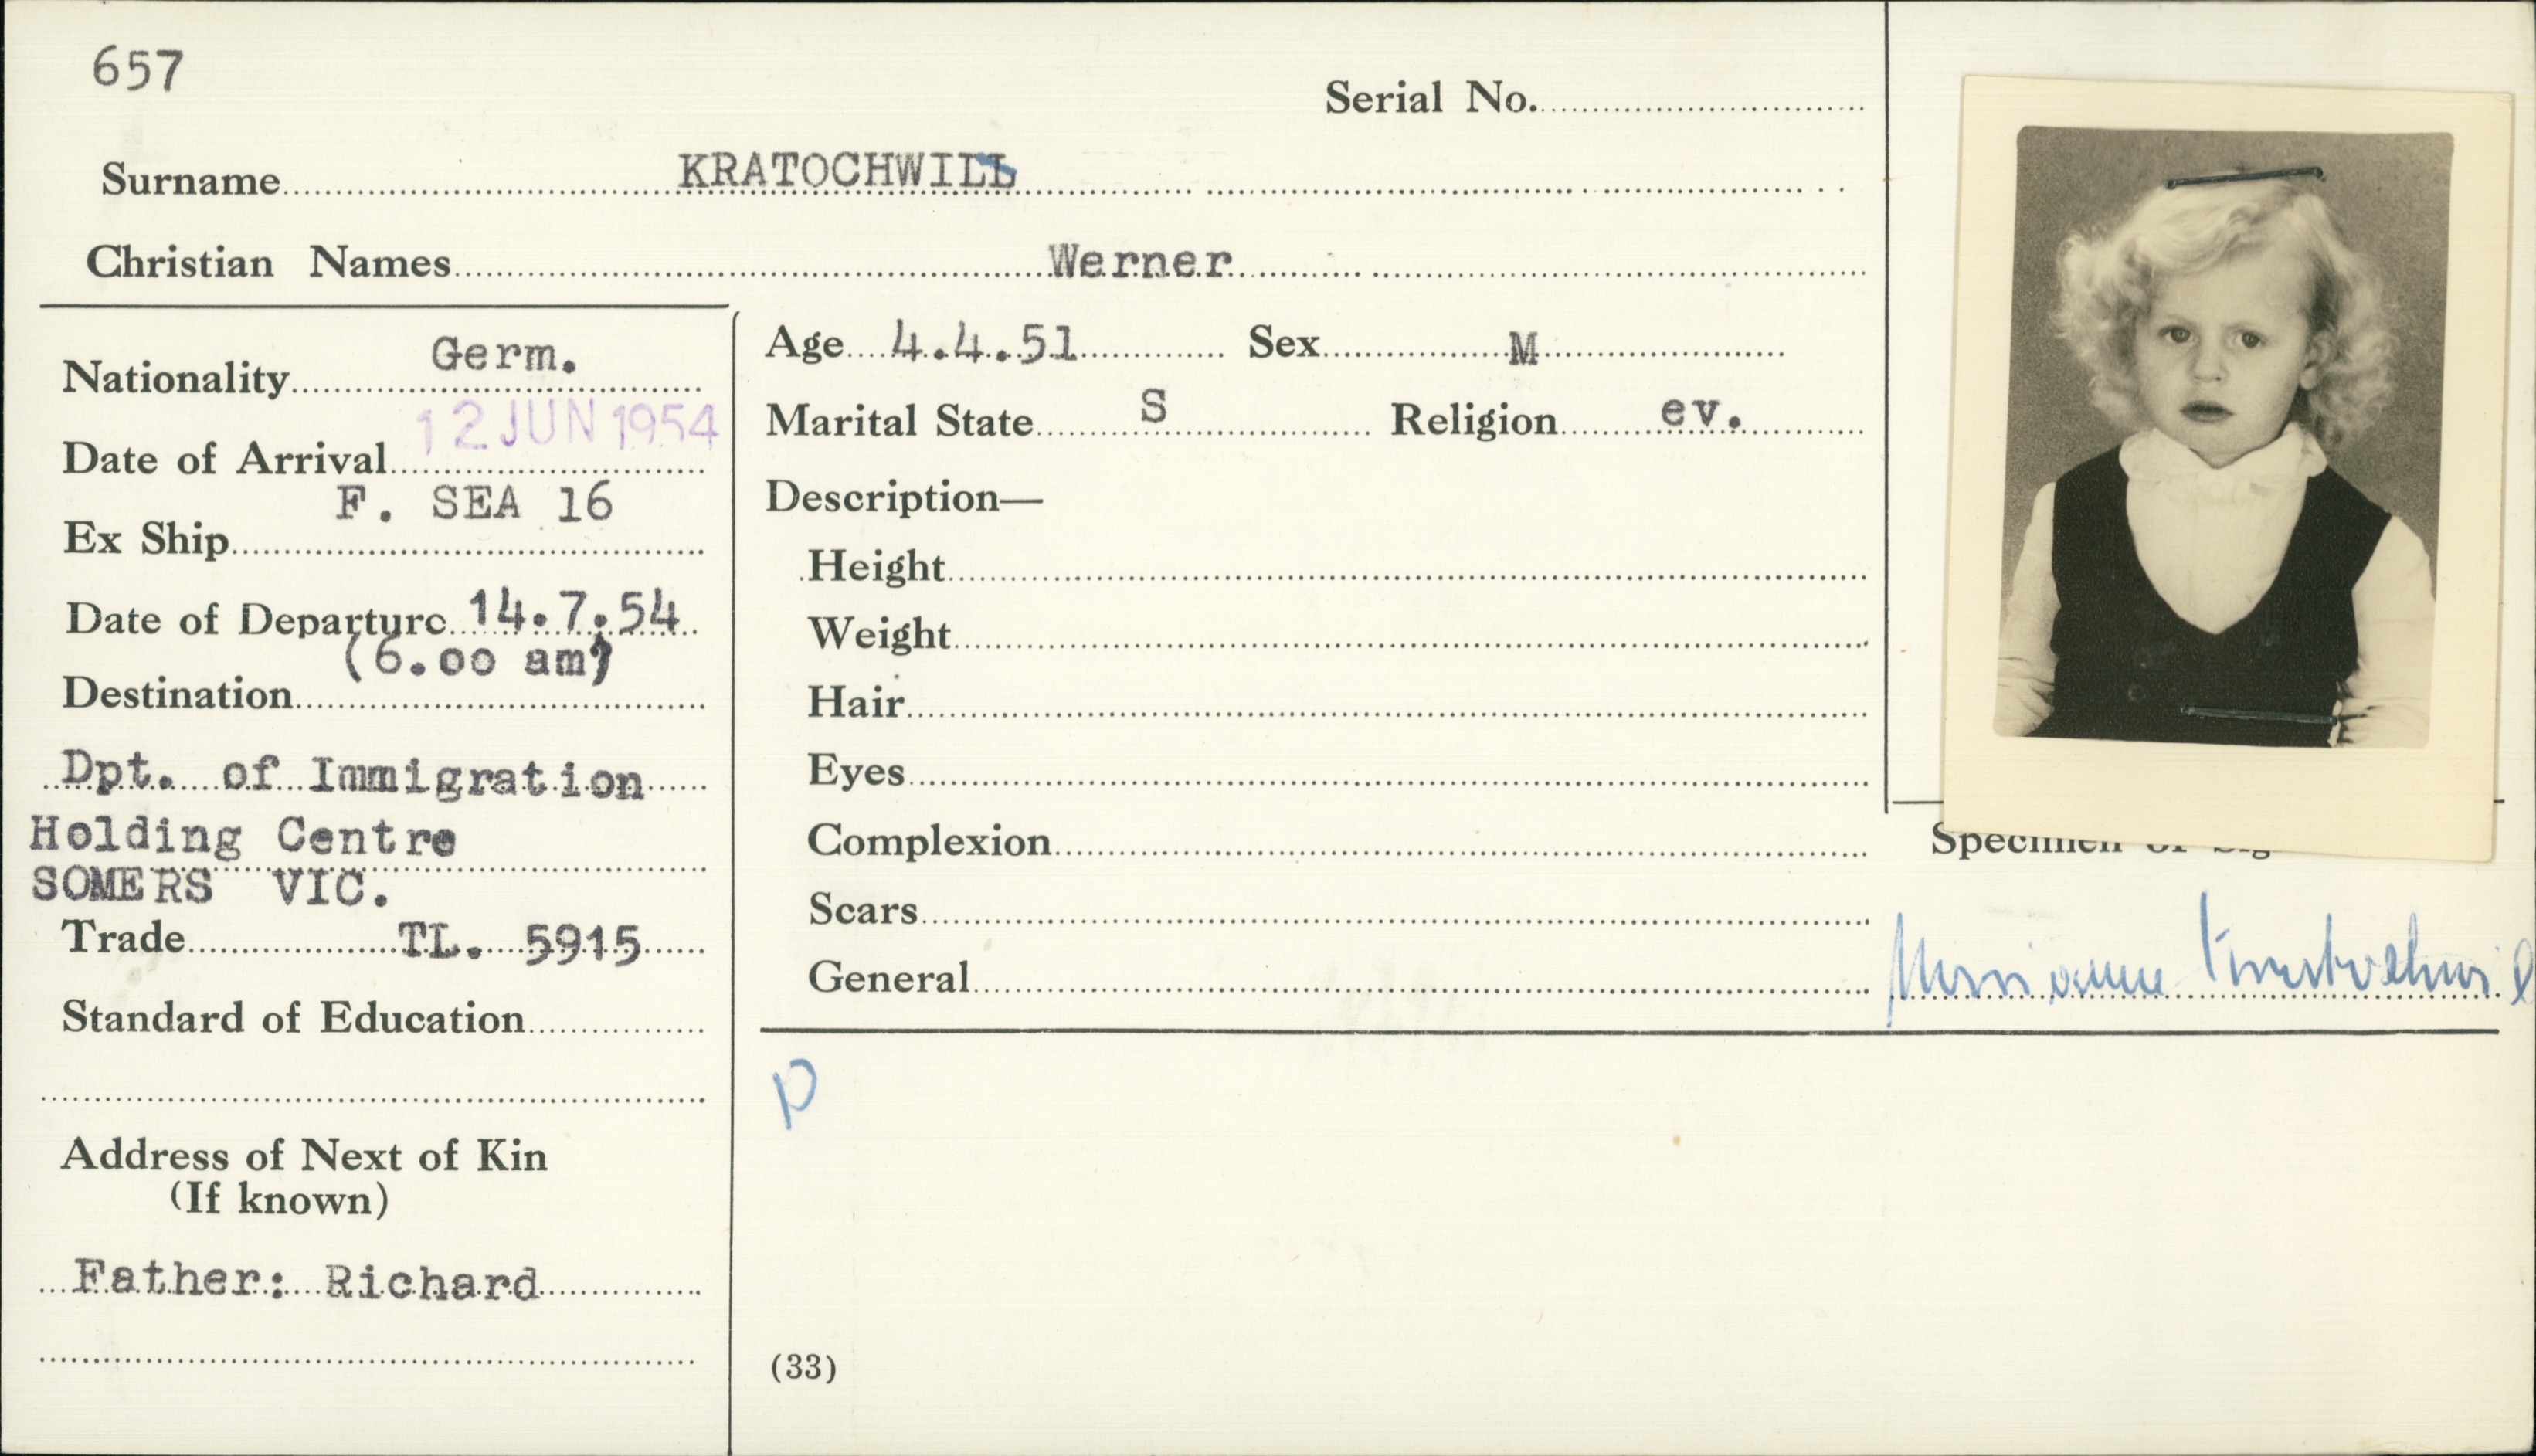 657
Serial No.
Surname KRATOCHWILL
Christian Names Werner
Nationality Germ.
Date of Arrival 12 JUN 1954
Ex Ship F. SEA 16
Date of Departure 14.7.54
(6.00 am)
Destination
Dpt. of Immigration
Holding Centre
SOMERS VIC.
Trade TL. 5915
Standard of Education
Address of Next of Kin
(If known)
Father: Richard
Age 4.4.51 Sex M
Marital State S Religion ev.
Description—
Height
Weight
Hair
Eyes
Complexion
Scars
General
Specimen of Sig
Marianne Kratochwil
P
(33)